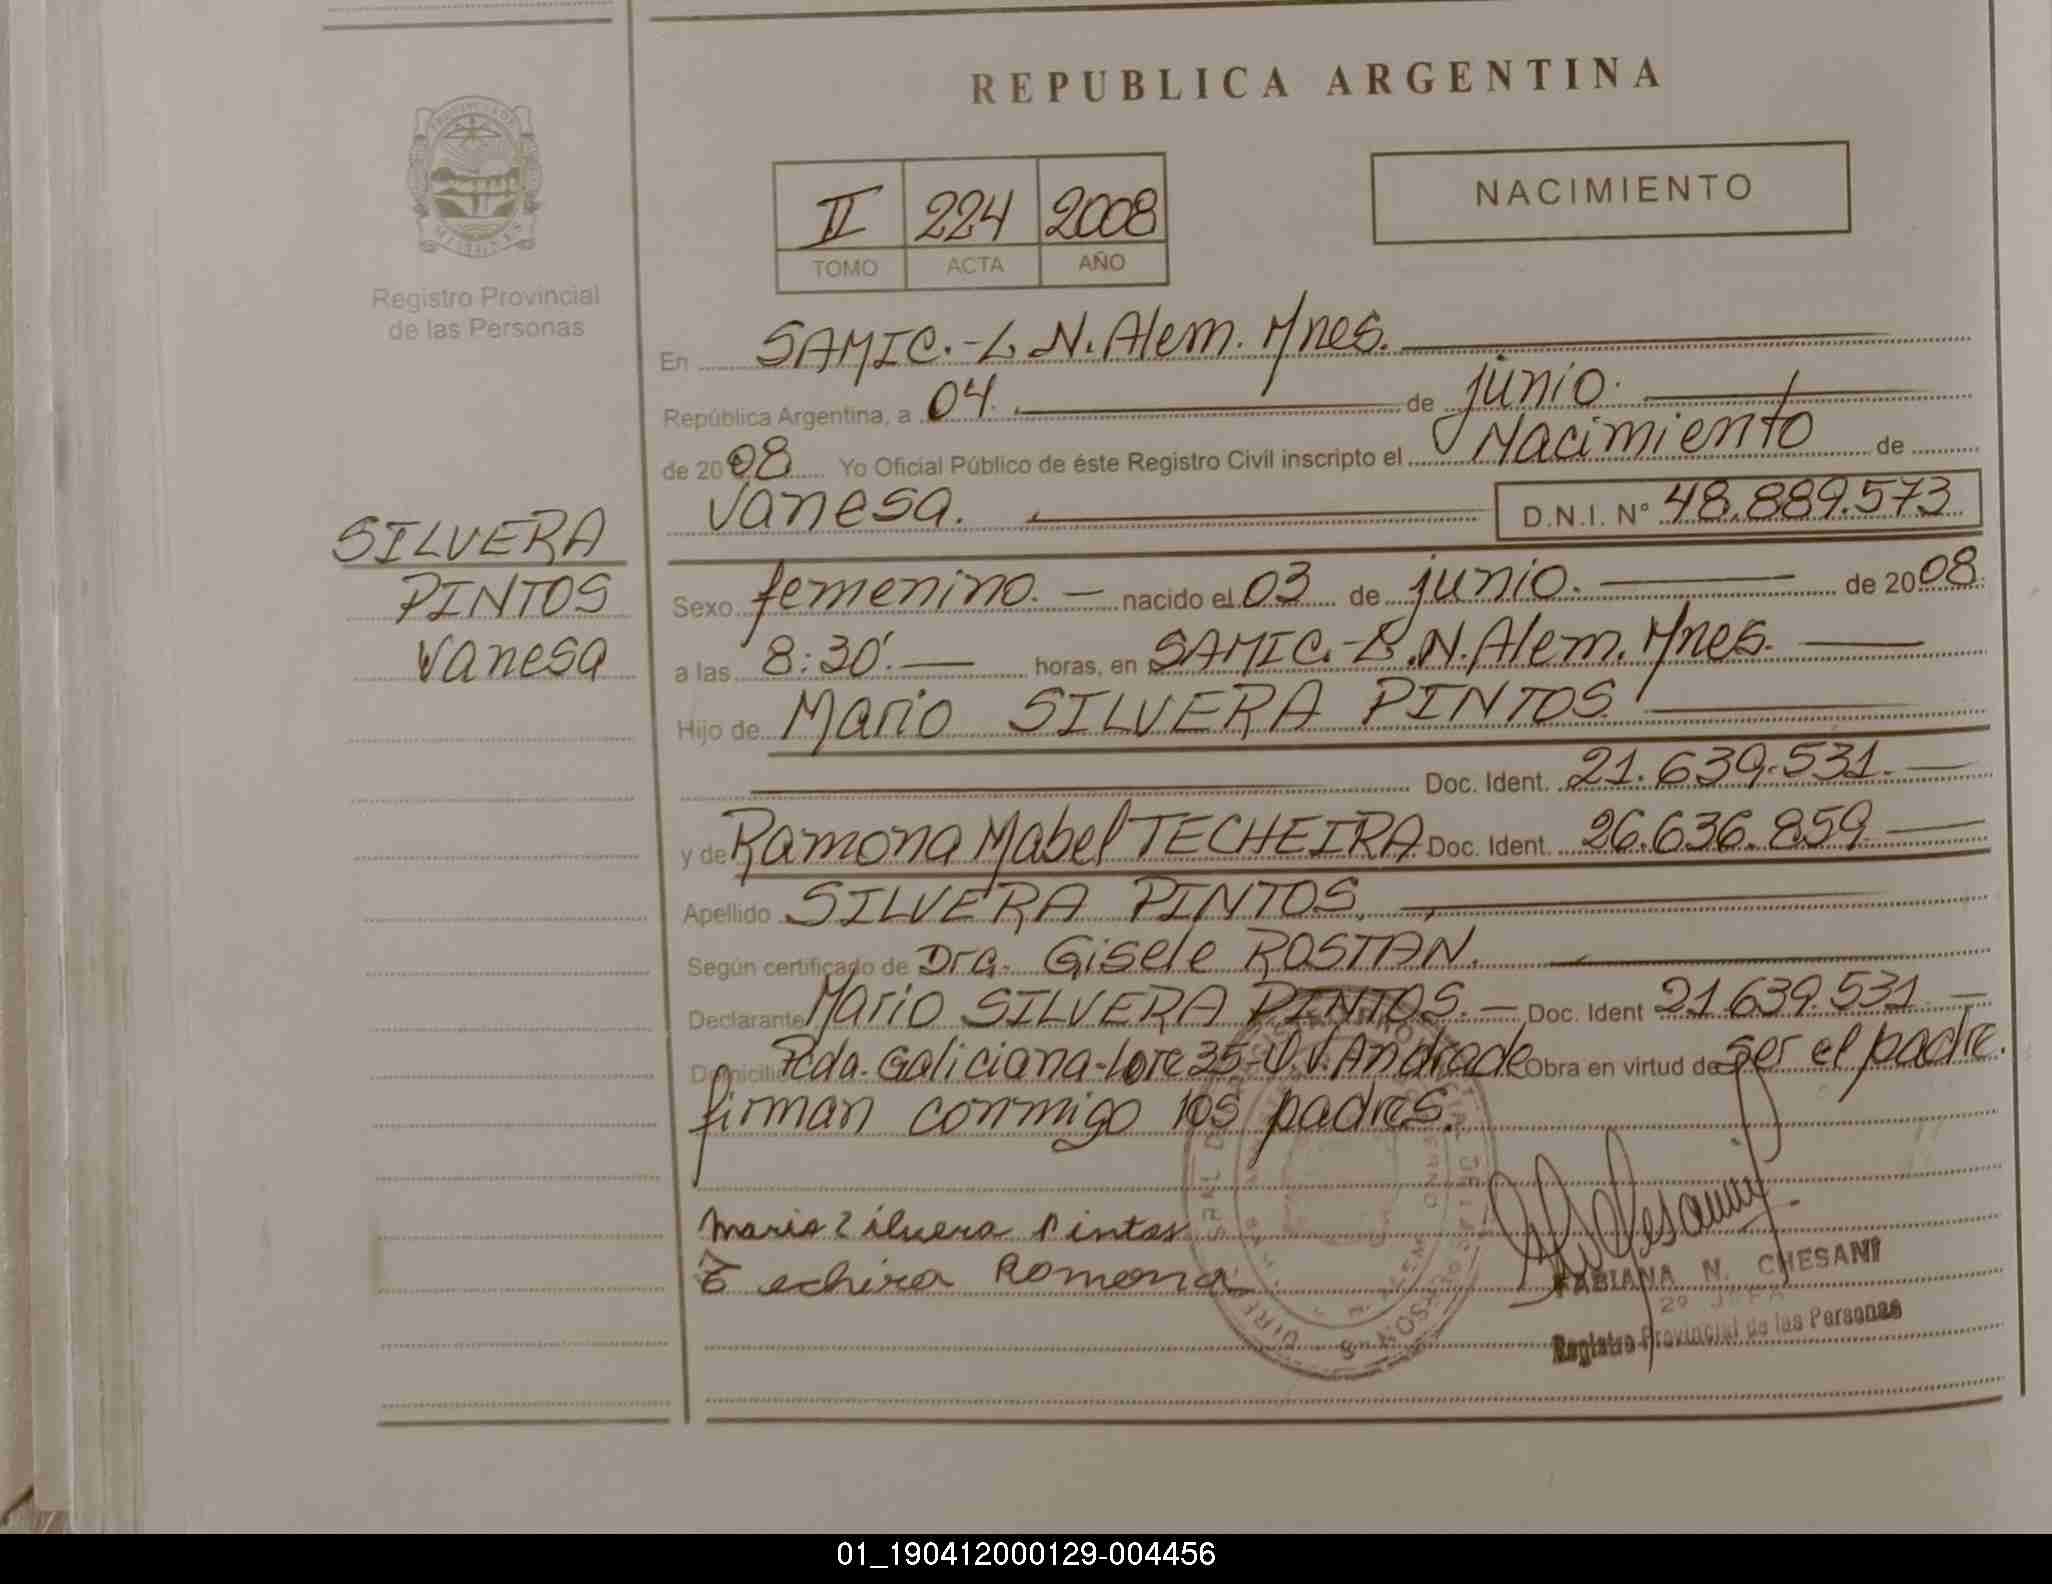 REPUBLICA ARGENTINA
NACIMIENTO
II 224 2008
TOMO ACTA AÑO
Registro Provincial
de las Personas
SILVERA
PINTOS
Vanesa
En SAMIC.-L.N.Alem.Mnes.
República Argentina, a 04. de junio.
de 2008 Yo Oficial Público de éste Registro Civil inscripto el Nacimiento de
Vanesa. D.N.I. Nº 48.889.573
Sexo femenino.- nacido el 03 de junio. de 2008
a las 8:30'. horas, en SAMIC.-L.N.Alem.Mnes.
Hijo de Mario SILVERA PINTOS
Doc. Ident. 21.639.531.
y de Ramona Mabel TECHEIRA Doc. Ident. 26.636.859
Apellido SILVERA PINTOS.
Según certificado de Dra. Gisele ROSTAN.
Declarante Mario SILVERA PINTOS.- Doc. Ident 21.639.531.-
Domicilio Galiciana-Lote 35-V.V.Andrade Obra en virtud de ser el padre.
firman conmigo los padres.
Mario Silvera Pintos
Techira Romona
FABIANA N. CHESANI
2º JEFA
Registro Provincial de las Personas
01_190412000129-004456